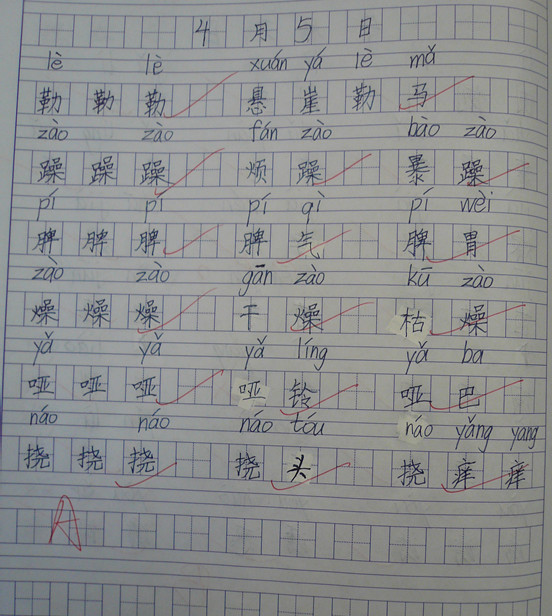 4月5日
lè lè xuán yá lè mǎ
勒 勒 勒 悬崖勒马
zào zào fán zào bào zào
躁 躁 躁 烦躁 暴躁
pí pí pí qì pí wèi
脾 脾 脾 脾气 脾胃
zào zào gān zào kū zào
燥 燥 燥 干燥 枯燥
yǎ yǎ yǎ líng yǎ ba
哑 哑 哑 哑铃 哑巴
náo náo náo tóu náo yǎng yang
挠 挠 挠 挠头 挠痒痒
A